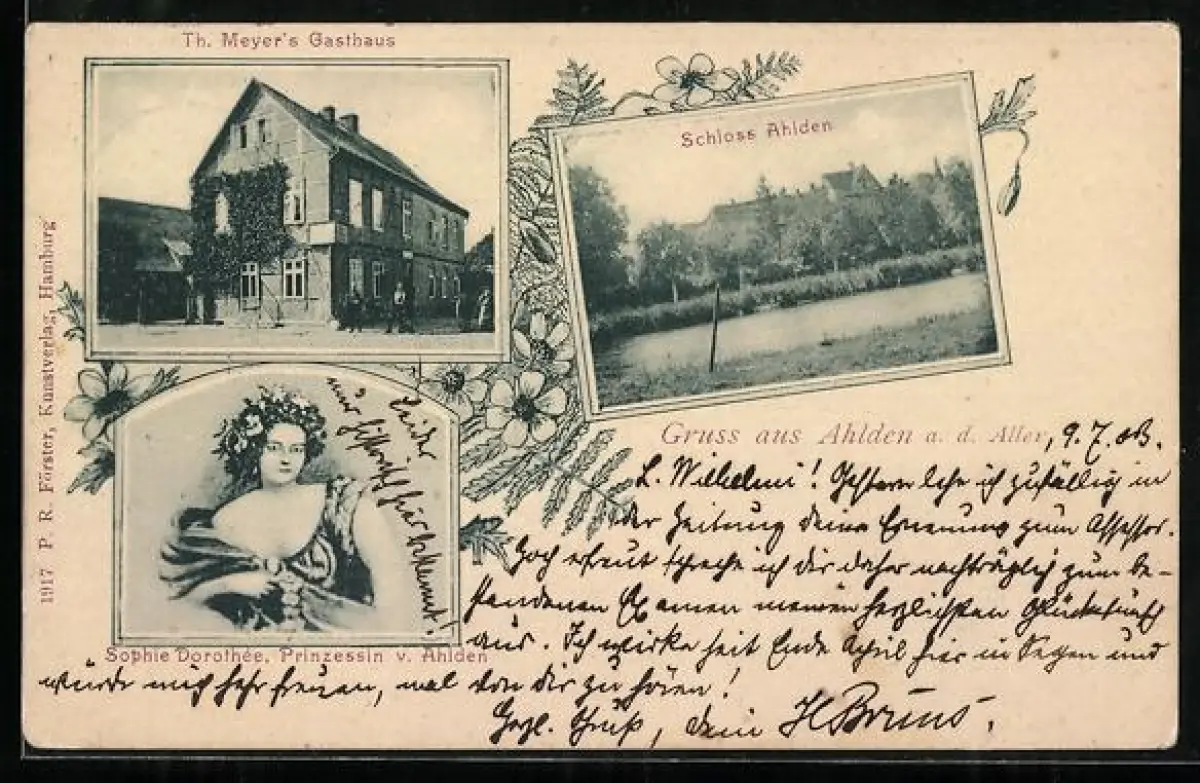 Th. Meyer's Gasthaus
Schloss Ahlden
1917 P. R. Förster, Kunstverlag, Hamburg
Sophie Dorothée, Prinzessin v. Ahlden
Gruss aus Ahlden a. d. Aller, 9.7.03.
L. Wilhelmi! Gestern lese ich zufällig in
der Zeitung deine Ernennung zum Assessor.
Hoch erfreut spreche ich dir daher nachträglich zum be-
standenen Examen meinen herzlichsten Glückwunsch
aus. Ich wirke seit Ende April hier in Segen und
würde mich sehr freuen, mal von dir zu hören!
Herzl. Gruß, dein H Bruns.
Leider
nur historisch